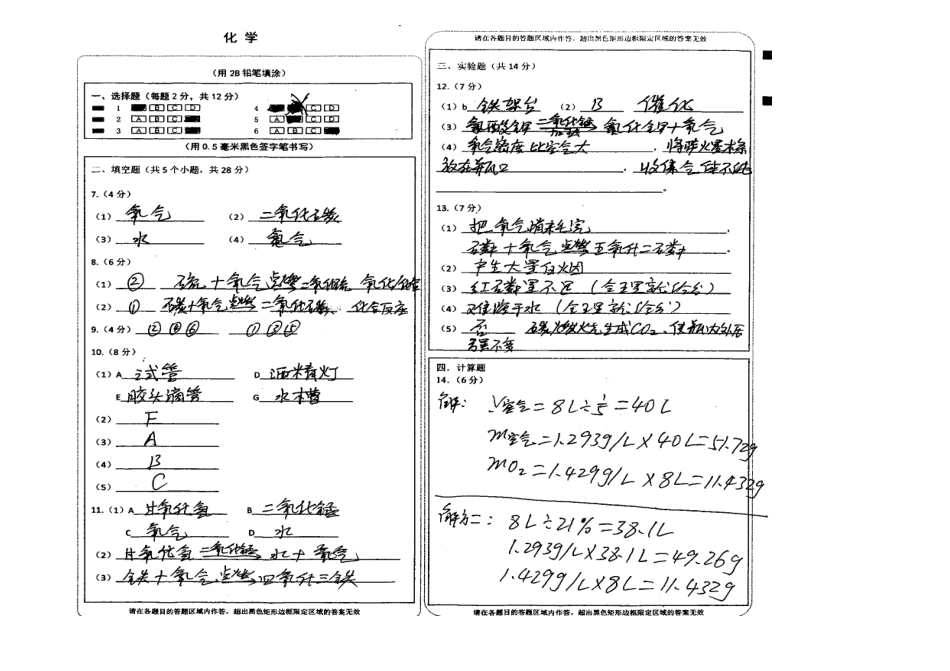 化 学
(用 2B 铅笔填涂)
一、选择题(每题 2 分，共 12 分)
1 B C D 4 C D
2 A B C 5 A C D
3 A B C 6 A B C
(用 0.5 毫米黑色签字笔书写)
二、填空题(共 5 个小题，共 28 分)
7.(4 分)
(1) 氧气 (2) 二氧化硫
(3) 水 (4) 氮气
8.(6 分)
(1) ② 硫+氧气 点燃 二氧化硫 氧化
(2) ① 碳+氧气 点燃 二氧化碳 化合反应
9.(4 分)
10.(8 分)
(1) A 试管 D 酒精灯
E 胶头滴管 G 水槽
(2) F
(3) A
(4) B
(5) C
11.(1) A 过氧化氢 B 二氧化锰
C 氧气 D 水
(2) 过氧化氢 二氧化锰 水+氧气
(3) 铁+氧气 点燃 四氧化三铁
请在各题目的答题区域内作答，超出黑色矩形边框限定区域的答案无效
请在各题目的答题区域内作答，超出黑色矩形边框限定区域的答案无效
三、实验题(共 14 分)
12.(7 分)
(1) b 铁架台 (2) B 催化
(3) 氯酸钾 二氧化锰 加热 氯化钾+氧气
(4) 氧气密度比空气大 , 将带火星木条
放在瓶口 , 收集气体不纯
。
13.(7 分)
(1) 把氧气消耗完 ,
磷+氧气 点燃 五氧化二磷 。
(2) 产生大量白烟
(3) 红磷量不足(全王军高分/合分)
(4) 难溶于水(全王军高分/合分)
(5) 否 碳燃烧生成CO₂，使瓶内外压
强不变
四、计算题
14.(6 分)
解: V空气=8L÷1/5=40L
m空气=1.293g/L×40L=51.72g
mO₂=1.429g/L×8L=11.432g
解方二: 8L÷21%=38.1L
1.293g/L×38.1L=49.26g
1.429g/L×8L=11.432g
请在各题目的答题区域内作答，超出黑色矩形边框限定区域的答案无效